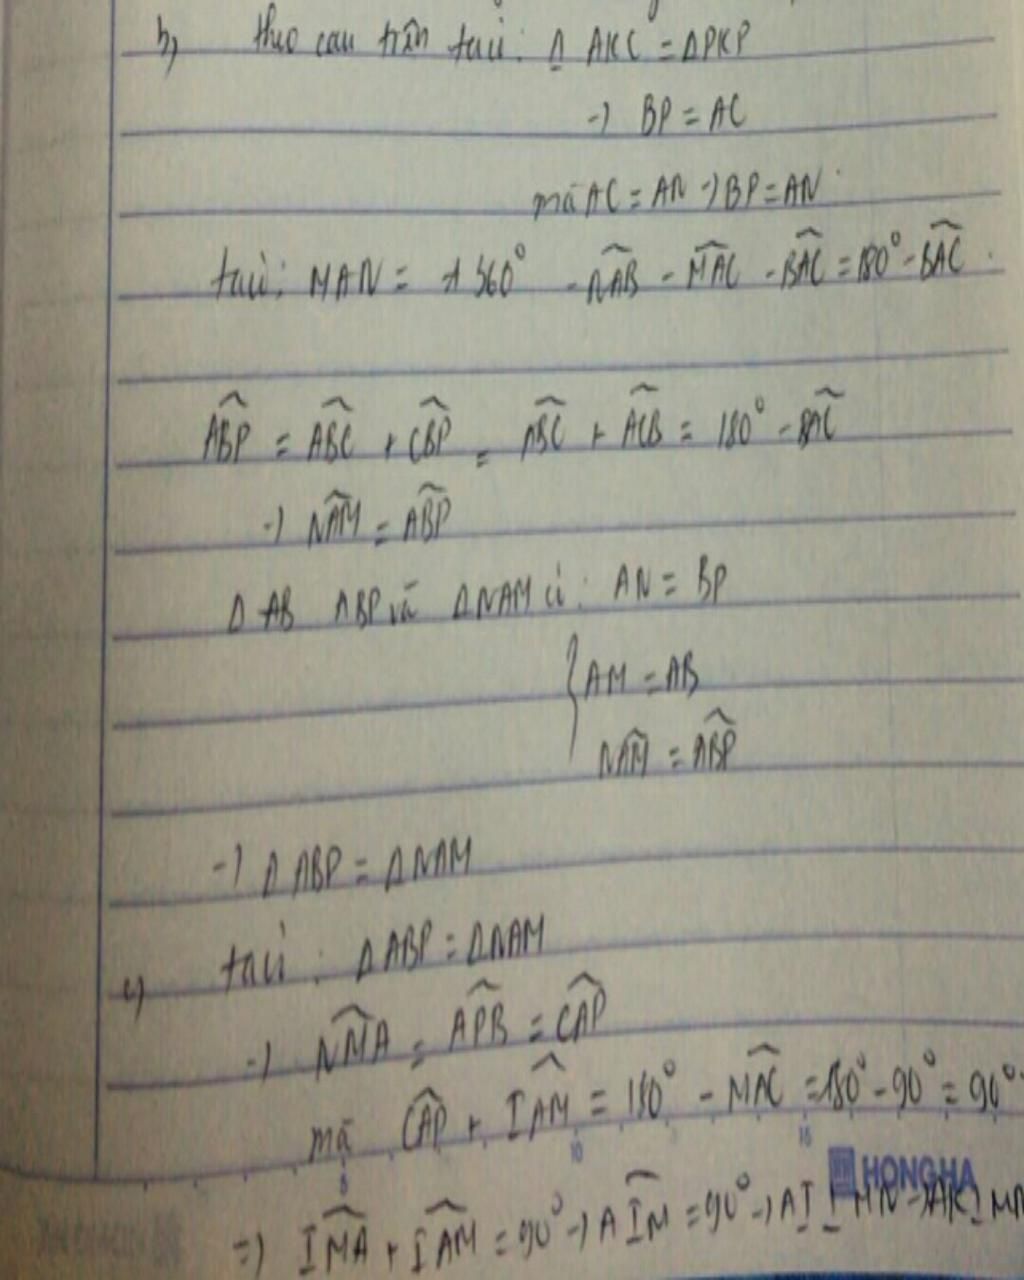 b, theo câu trên ta có: Δ AKC = ΔPKP
-) BP = AC
mà AC = AN -) BP = AN
ta có: MAN = 360° - NAB - MAC - BAC = 180° - BAC
ABP = ABC + CBP = ABC + ACB = 180° - BAC
-) NAM = ABP
Δ AB ABP và ΔNAM có: AN = BP
AM = AB
NAM = ABP
-) Δ ABP = ΔNAM
c) ta có: ΔABP = ΔNAM
-) NMA = APB = CAP
mà CAP + IAM = 180° - MAC = 180° - 90° = 90°
5 10 15
HONGHA
=) IMA + IAM = 90° -) AIM = 90° -) AI ⊥ MN -) AK ⊥ MN